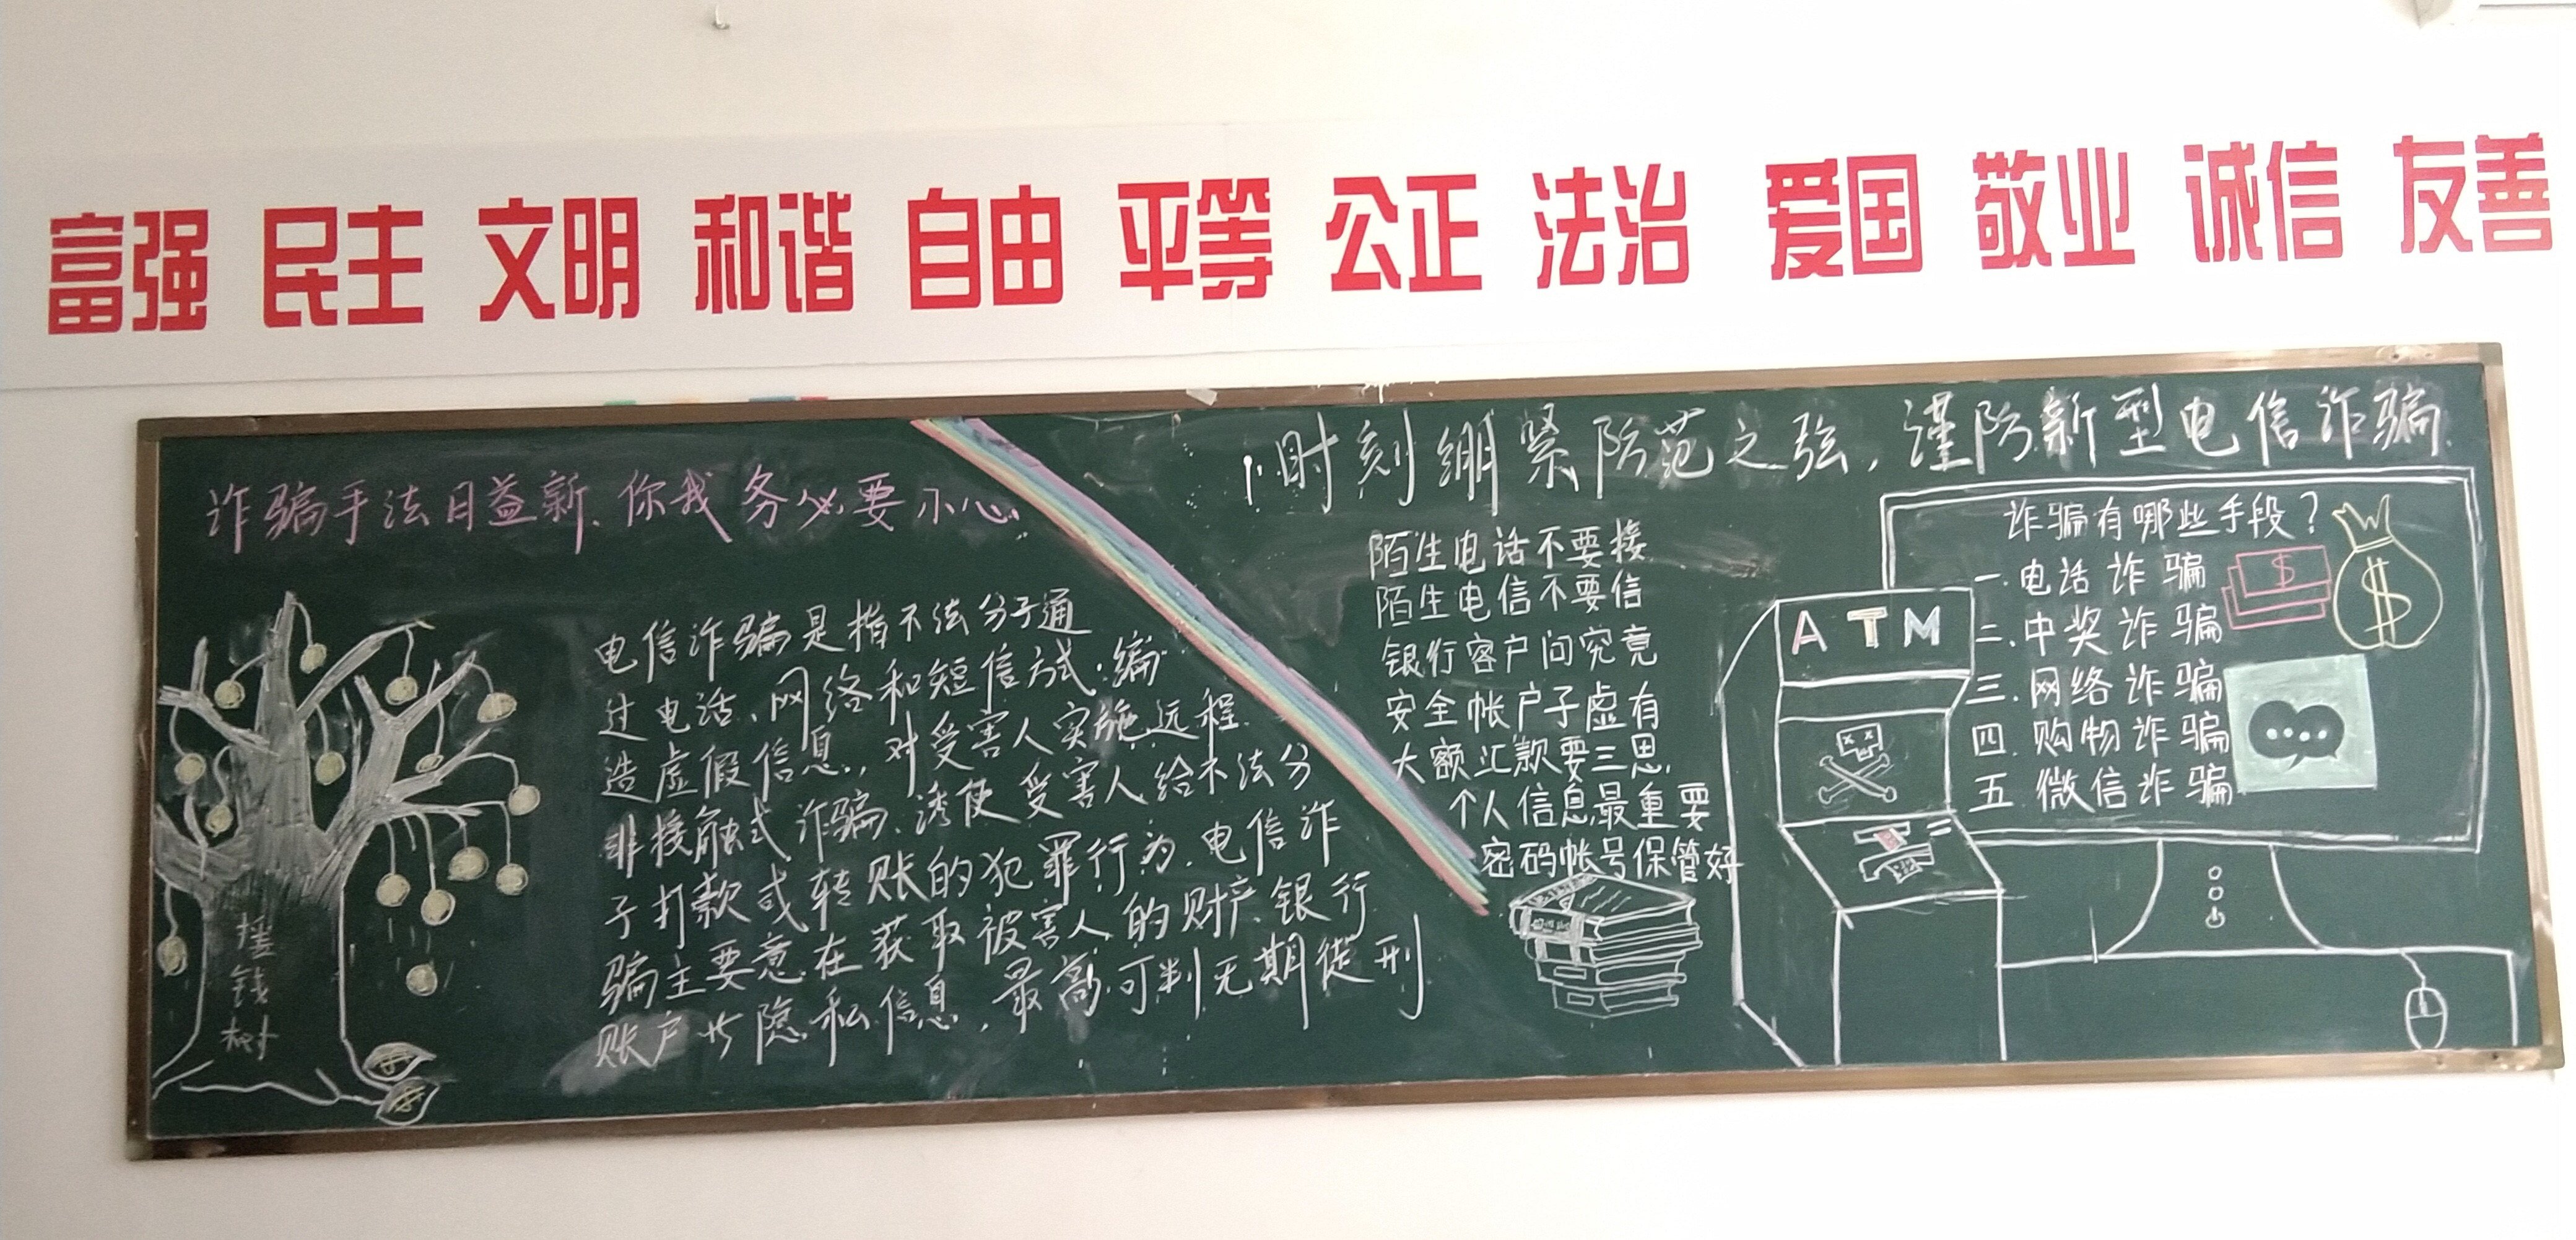 富强 民主 文明 和谐 自由 平等 公正 法治 爱国 敬业 诚信 友善
诈骗手法日益新、你我务必要小心.
电信诈骗是指不法分子通
过电话、网络和短信方式.编
造虚假信息,对受害人实施远程
非接触式诈骗、诱使受害人给不法分
子打款或转账的犯罪行为.电信诈
骗主要意在获取被害人的财产.银行
账户与隐私信息,最高可判无期徒刑
摇
钱
树
时刻绷紧防范之弦,谨防新型电信诈骗
陌生电话不要接
陌生电信不要信
银行客户问究竟
安全帐户子虚有
大额汇款要三思.
个人信息最重要
密码帐号保管好
ATM
诈骗有哪些手段?
一.电话诈骗
二.中奖诈骗
三.网络诈骗
四.购物诈骗
五 微信诈骗
$
$